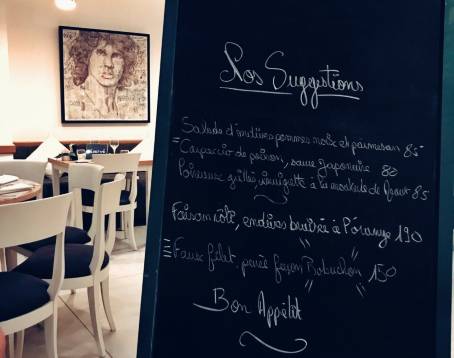 Nos Suggestions
Salade d'endives pommes noix et parmesan 85
Carpaccio de poisson, sauce Japonaise 80
Poireaux grillés, vinaigrette à la moutarde de Meaux 85
Faisan rôti, endives braisées à l'orange 190
Faux filet, purée façon Robuchon 150
Bon Appétit